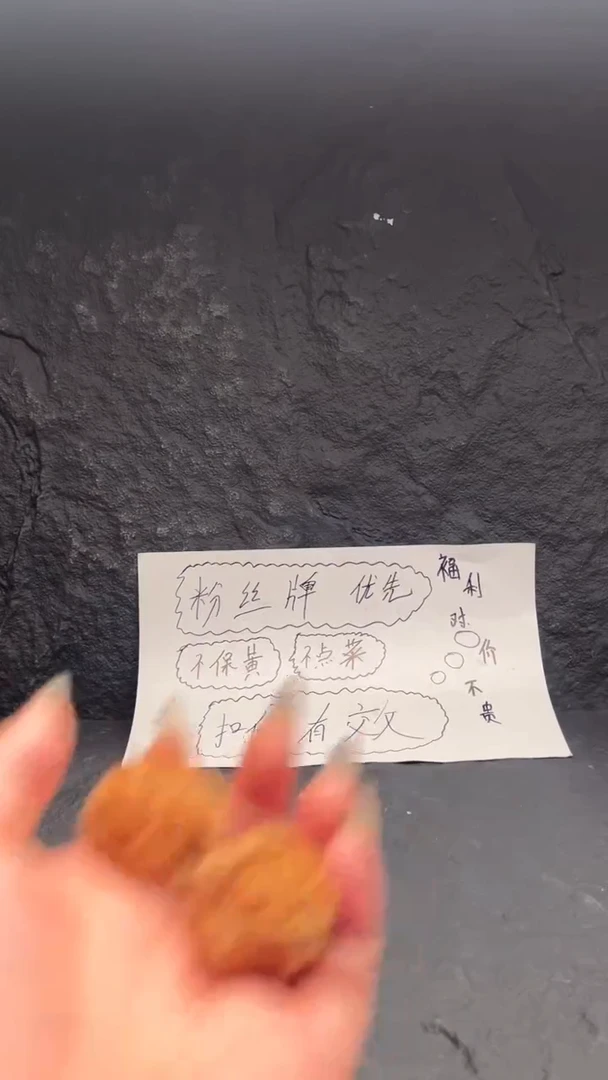 粉丝牌 优先
不保黄 不点菜
扣 有效
福利
对价
不贵